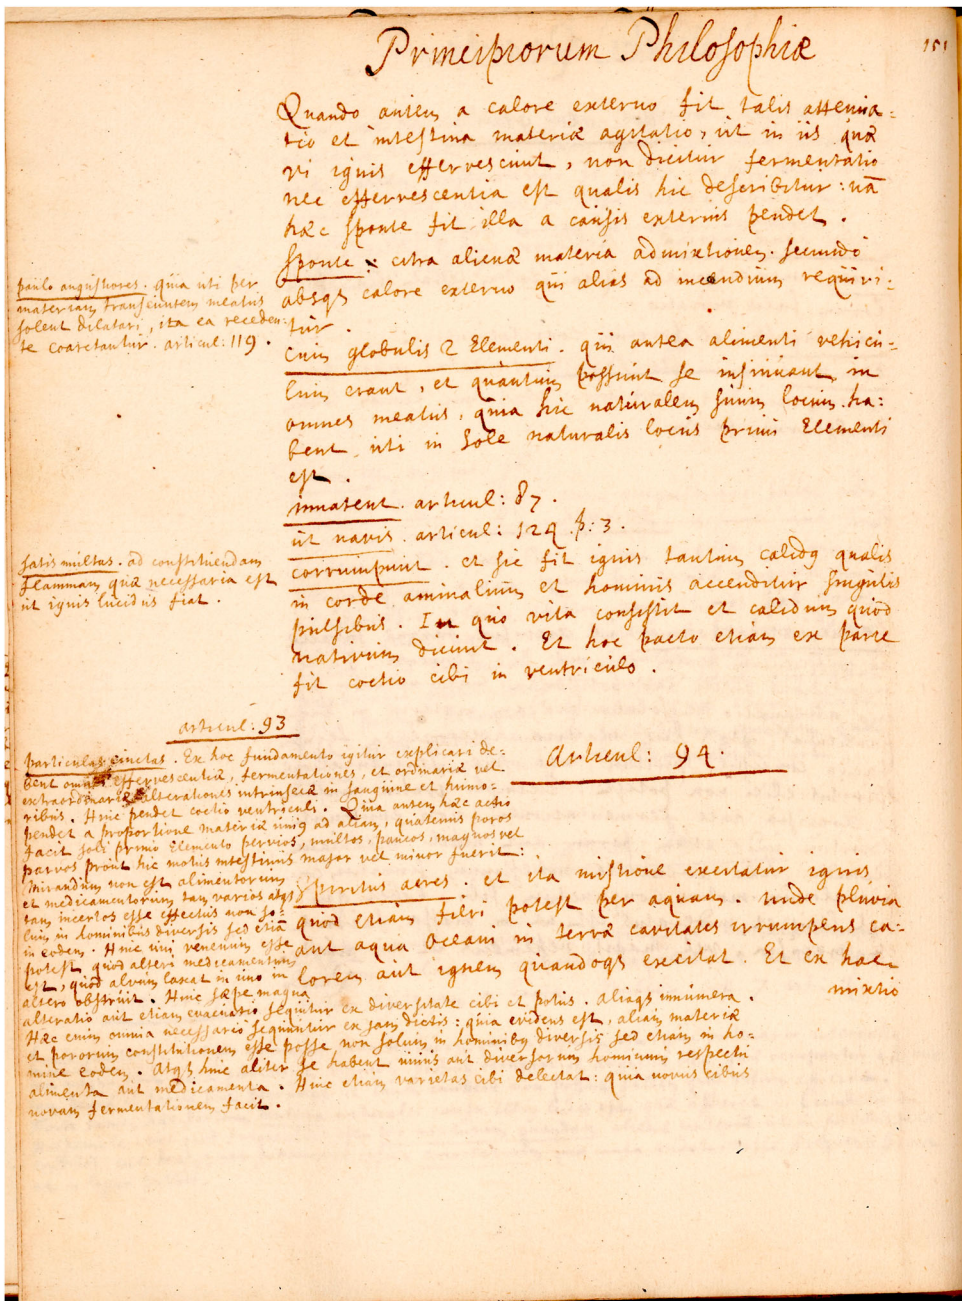 Principiorum Philosophiæ
151
Quando autem a calore externo fit talis attenua=
tio et intestina materiæ agitatio, ut in iis quæ
vi ignis effervescunt, non dicitur fermentatio
nec effervescentia est qualis hic describitur: nā
hæc sponte fit illa a causis externis pendet.
sponte x citra alienæ materiæ admixtionem. secundo
absqs calore externo qui alias ad incendium requiri=
tur.
cum globulis 2 Elementi. qui antea alimenti vehicu=
lum erant, et quantum possunt se insinuant in
omnes meatus, quia hic naturalem suum locum ha:
bent, uti in Sole naturalis locus primi Elementi
est.
innatent. articul: 87.
ut navis. articul: 129. p: 3.
corrumpunt. et sic fit ignis tantum calidq qualis
in corde animalium et hominis accenditur singulis
pulsibus. In quo vita consistit et calidum quod
nativum dicunt. Et hoc pacto etiam ex parte
fit coctio cibi in ventriculo.
paulo angustiores. quia uti per
materiam transeuntem meatus
solent dilatari, ita ea receden:
te coarctantur. articul: 119.
satis multas. ad constituendam
flammam quæ necessaria est
ut ignis lucidus fiat.
articul: 93
particulas cinctas. Ex hoc fundamento igitur explicari de=
bent omnes effervescentiæ, fermentationes, et ordinariæ vel
extraordinariæ alterationes intrinsecæ in sanguine et humo=
ribus. Hinc pendet coctio ventriculi. Quia autem hæc actio
pendet a proportione materiæ uniq ad aliam, quatenus poros
facit soli primo Elemento pervios, multos, paucos, magnos vel
parvos prout hic motus intestinus major vel minor fuerit:
Mirandum non est alimentorum
et medicamentorum tam varios atqs
tam incertos esse effectus non so=
lum in hominibus diversis sed etiā
in eodem. Hinc uni venenum esse
potest quod alteri medicamentum
est, quod alvum laxat in uno in
altero obstruit. Hinc sæpe magna
alteratio aut etiam evacuatio sequitur ex diversitate cibi et potus. aliaqs innumera.
Hæc enim omnia necessario sequuntur ex jam dictis: quia evidens est, aliam materiæ
et pororum constitutionem esse posse non solum in hominibq diversis sed etiam in ho=
mine eodem. Atqs hinc aliter se habent unius aut diversorum hominum respectu
alimenta aut medicamenta. Hinc etiam varietas cibi delectat: quia novus cibus
novam fermentationem facit.
Articul: 94.
Spiritus acres. et ita mistione excitatur ignis
quod etiam fieri potest per aquam. unde pluvia
aut aqua Oceani in terræ cavitates irrumpens ca=
lorem aut ignem quandoqs excitat. Et ex hac
mixtio